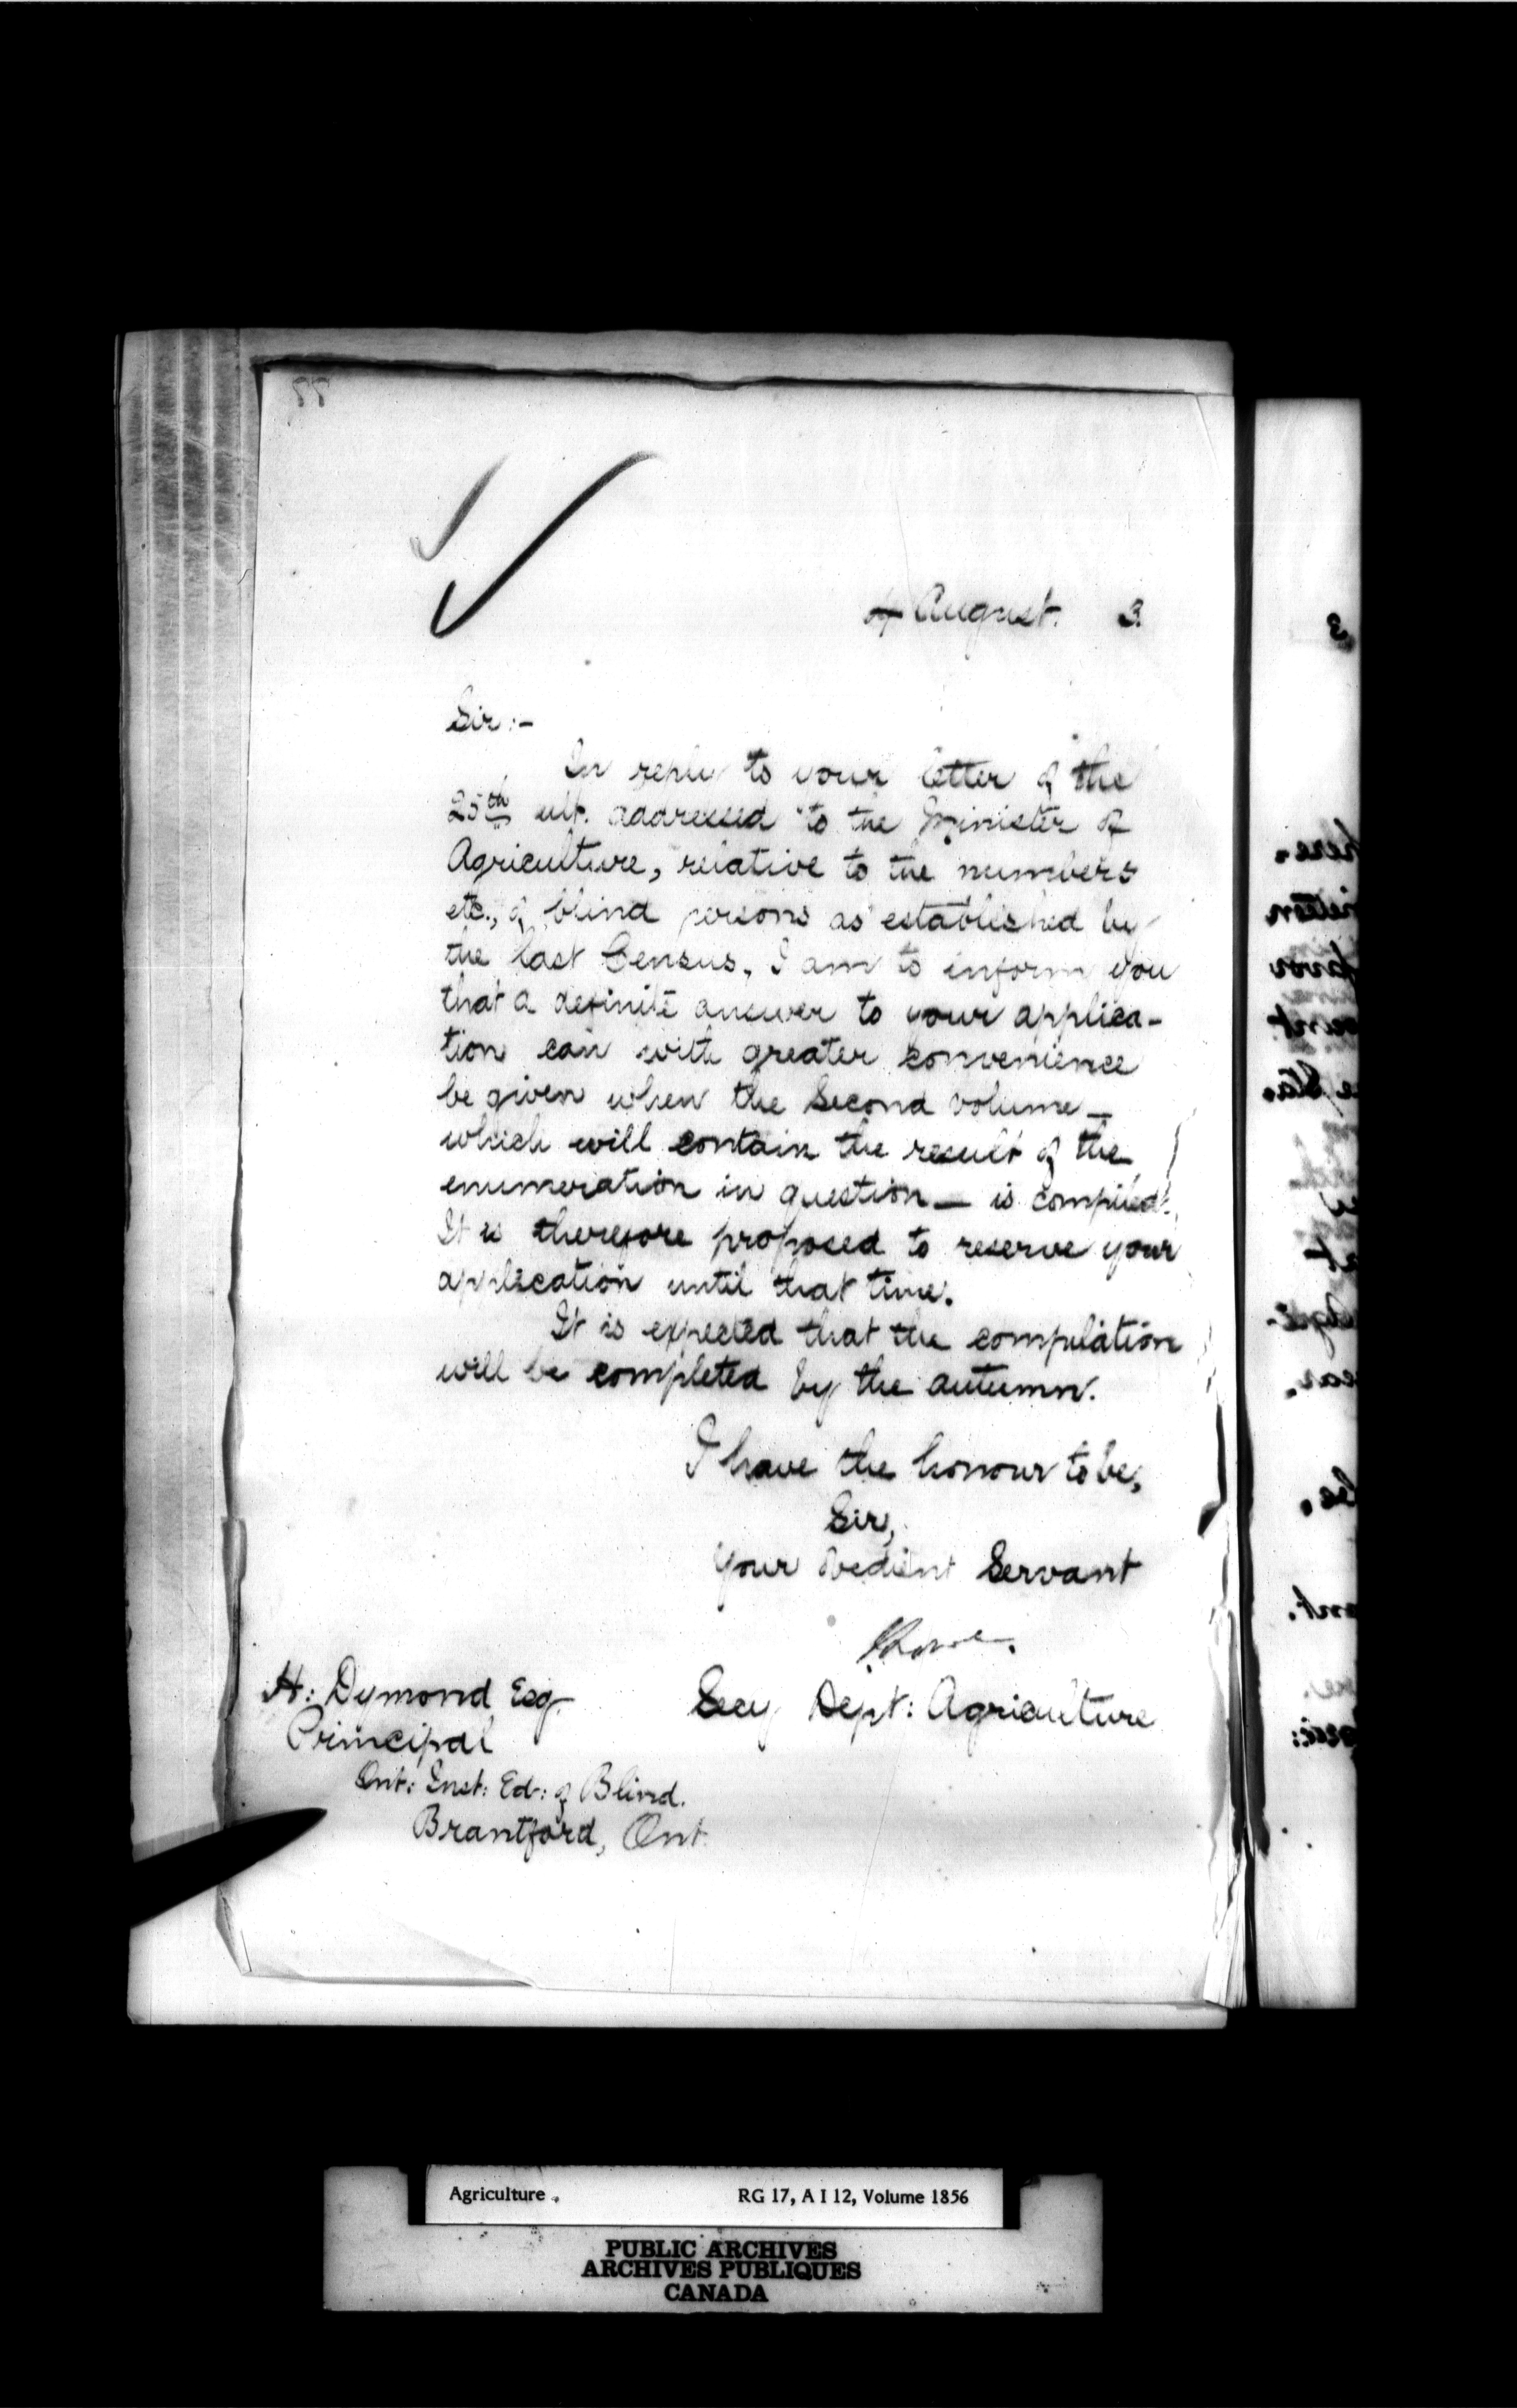 4 August. 3.
Sir:-
In reply to your letter of the
25th ult. addressed to the Minister of
Agriculture, relative to the numbers
etc., of blind persons as established by
the last Census, I am to inform you
that a definite answer to your applica-
tion can with greater convenience
be given when the Second volume—
which will contain the result of the
enumeration in question— is compiled.
It is therefore proposed to reserve your
application until that time.
It is expected that the compilation
will be completed by the autumn.
I have the honour to be,
Sir,
Your obedient Servant
Secy Dept: Agriculture
H: Dymond Esq.
Principal
Ont: Inst: Ed: of Blind.
Brantford, Ont.
Agriculture RG 17, A I 12, Volume 1856
PUBLIC ARCHIVES
ARCHIVES PUBLIQUES
CANADA